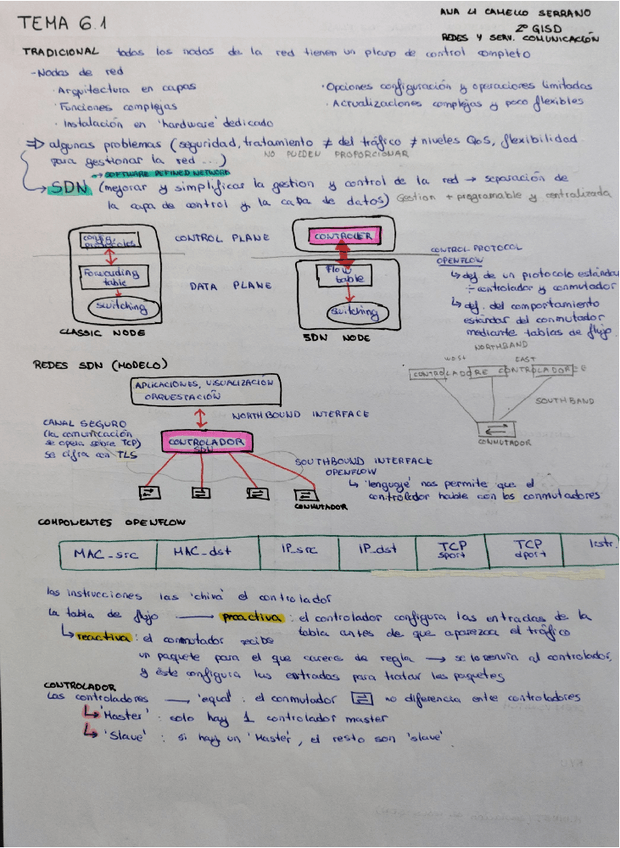 TEMA 6.1
ANA LI CAMELLO SERRANO
2º GISD
REDES Y SERV. COMUNICACIÓN
TRADICIONAL todos los nodos de la red tienen un plano de control completo
- Nodos de red
· Arquitectura en capas
· Opciones configuración y operaciones limitadas
· Funciones complejas
· Actualizaciones complejas y poco flexibles
· Instalación en 'hardware' dedicado
⇒ algunos problemas (seguridad, tratamiento ≠ del tráfico ≠ niveles QoS, flexibilidad
para gestionar la red ...) NO PUEDEN PROPORCIONAR
→ SOFTWARE DEFINED NETWORK
→ SDN (mejorar y simplificar la gestion y control de la red → separación de
la capa de control y la capa de datos) Gestion + programable y centralizada
CONTROL PLANE
CONTROLLER
CONTROL PROTOCOL
OPENFLOW
Forwarding
table
DATA PLANE
Flow
table
↳ def de un protocolo estándar
÷ controlador y conmutador
switching
switching
↳ def. del comportamiento
estándar del conmutador
mediante tablas de flujo.
CLASSIC NODE
SDN NODE
REDES SDN (MODELO)
NORTHBAND
WEST
EAST
CONTROLADORE CONTROLADORE
APLICACIONES, VISUALIZACIÓN
ORQUESTACIÓN
NORTHBOUND INTERFACE
SOUTHBAND
CANAL SEGURO
(la comunicación
se opera sobre TCP)
se cifra con TLS
CONTROLADOR
SDN
CONMUTADOR
SOUTHBOUND INTERFACE
OPENFLOW
↳ 'lenguaje' nos permite que el
controlador hable con los conmutadores
CONMUTADOR
COMPONENTES OPENFLOW
MAC_src MAC_dst IP_src IP_dst TCP sport TCP dport Instr.
las instrucciones las 'chiva' el controlador
la tabla de flujo → proactiva : el controlador configura las entradas de la
tabla antes de que aparezca el tráfico
↳ reactiva : el conmutador recibe
un paquete para el que carece de regla → se lo envía al controlador,
y éste configura las entradas para tratar los paquetes
CONTROLADOR
Los controladores → 'equal' : el conmutador no diferencia entre controladores
↳ 'Master' : solo hay 1 controlador master
↳ 'Slave' : si hay un 'Master', el resto son 'slave'